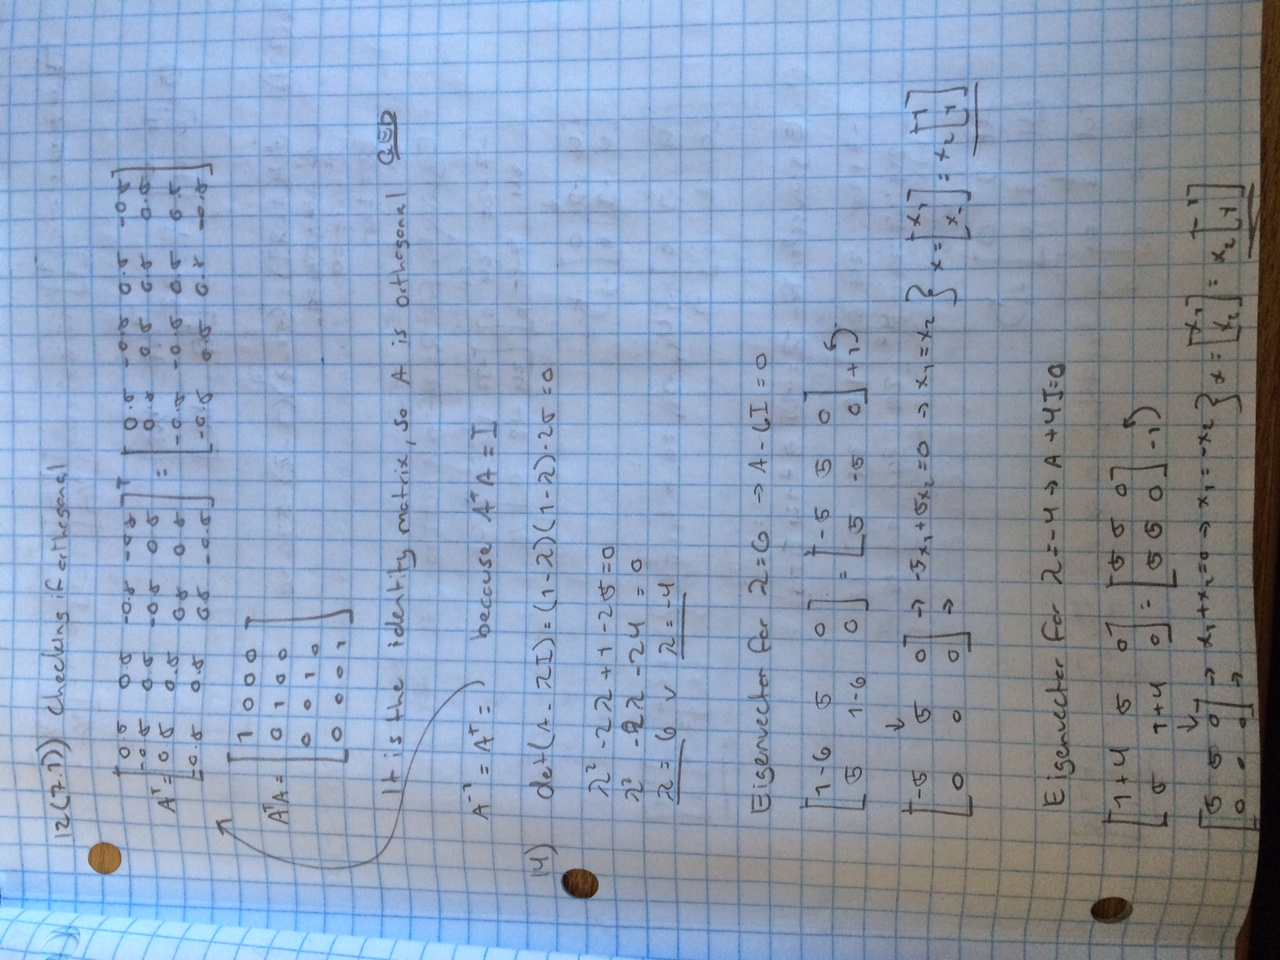 12(7.1)) Checking if orthogonal
A^T = [0.5 0.5 -0.5 -0.5; -0.5 0.5 -0.5 0.5; 0.5 0.5 0.5 0.5; -0.5 0.5 0.5 -0.5]^T = [0.5 -0.5 0.5 -0.5; 0.5 0.5 0.5 0.5; -0.5 -0.5 0.5 0.5; -0.5 0.5 0.5 -0.5]
A^T A = [1 0 0 0; 0 1 0 0; 0 0 1 0; 0 0 0 1]
It is the identity matrix, so A is orthogonal QED
A^-1 = A^T = because A^T A = I
14) det(A - λI) = (1-λ)(1-λ)-25 = 0
λ² - 2λ + 1 - 25 = 0
λ² - 2λ - 24 = 0
λ = 6 v λ = -4
Eigenvector for λ=6 → A - 6I = 0
[1-6 5 0; 5 1-6 0] = [-5 5 0; 5 -5 0] +1
[-5 5 0; 0 0 0] → -5x₁ + 5x₂ = 0 → x₁ = x₂ } x = [x₁; x₂] = x₂ [1; 1]
Eigenvector for λ=-4 → A + 4I = 0
[1+4 5 0; 5 1+4 0] = [5 5 0; 5 5 0] -1
[5 5 0; 0 0 0] → x₁ + x₂ = 0 → x₁ = -x₂ } x = [x₁; x₂] = x₂ [-1; 1]